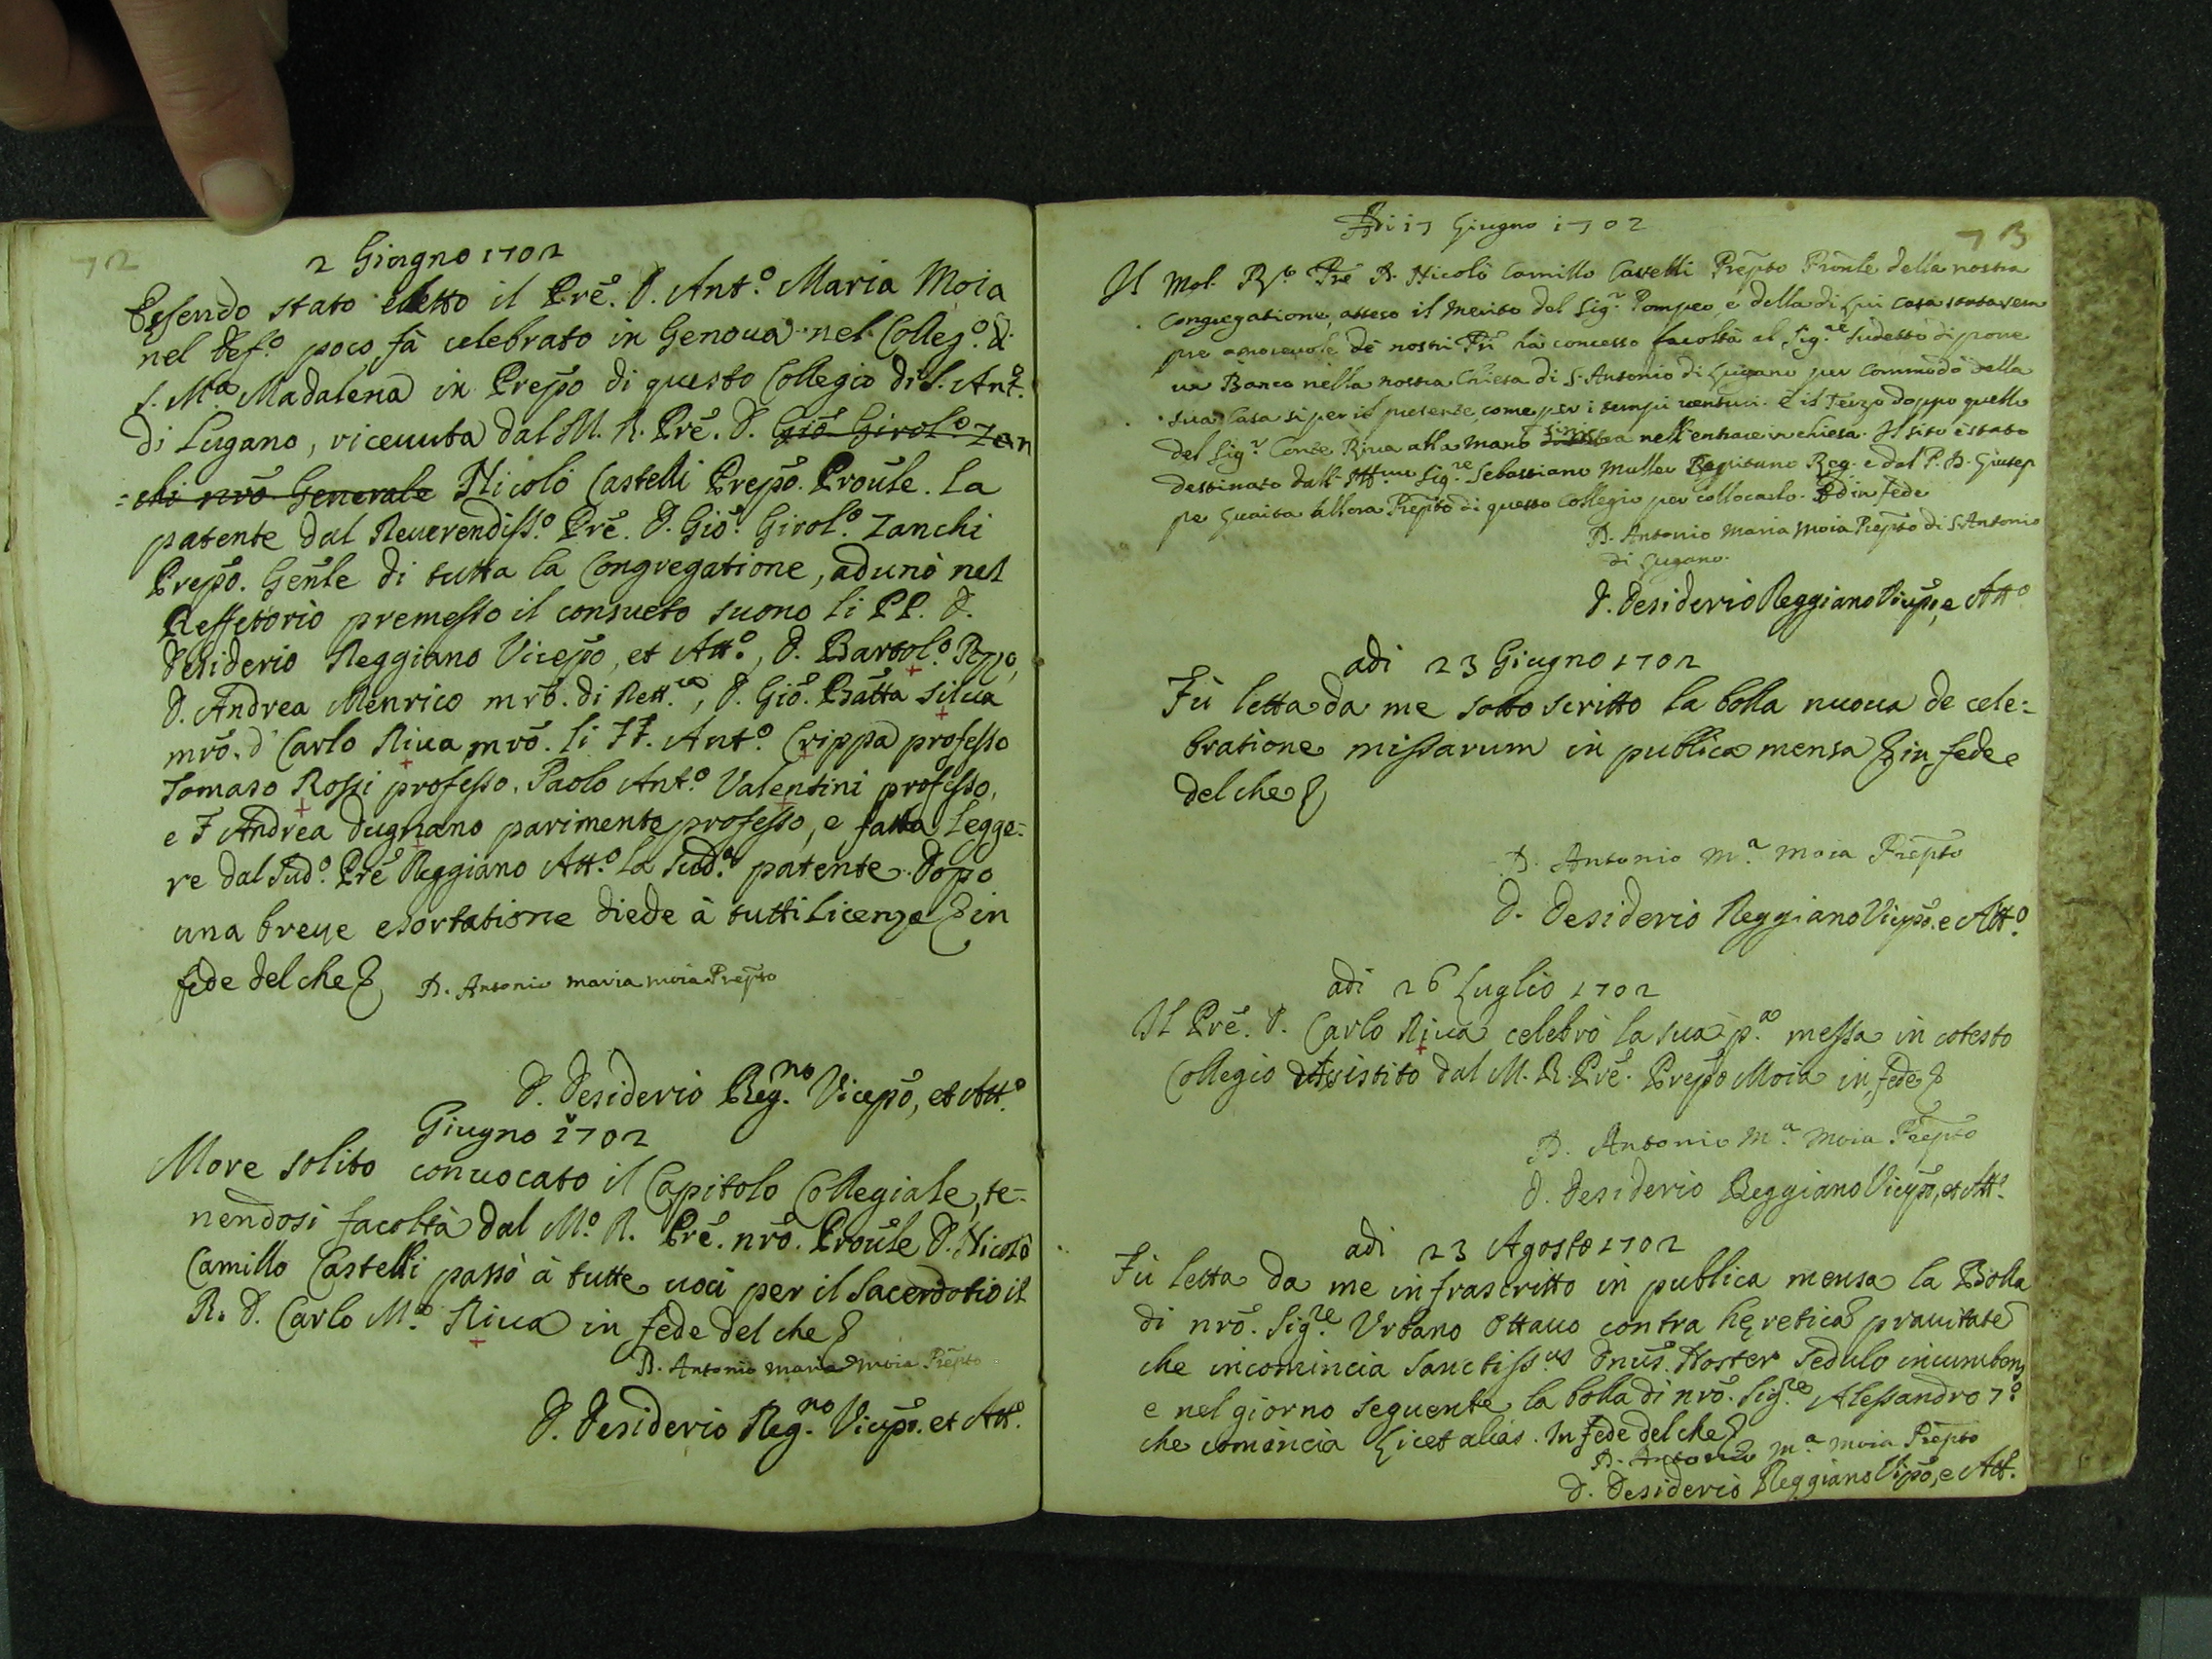 72
2 Giugno 1702
Essendo stato eletto il Prẽ. D. Ant.º Maria Moia
nel def.º poco fà celebrato in Genoua nel Colleg.º di
S. M.ª Madalena in Prepõ di questo Collegio di S. Ant.º
di Lugano, riceuuta dal M. R. Prẽ. D. Giõ Girol.º Zan
=chi nrõ Generale Nicolò Castelli Prepõ. Prouĩle. la
patente dal Reuerendiss.º Prẽ. D. Giõ: Girol.º Zanchi
Prepõ. Genl̃e di tutta la Congregatione, adunò nel
Reffetorio premesso il consueto suono li PP. D.
Desiderio Reggiano Vicepõ, et Att.º, D. Bartol.º
D. Andrea Menrico mrõ. di Rett.ca, D. Giõ. Batta Silua
mrõ. D Carlo Riua mrõ. li FF. Ant.º Crippa professo
Tomaso Rossi professo. Paolo Ant.º Valentini professo,
e F Andrea dugnano parimente professo, e fatta legge=
re dal Sud.º Prẽ Reggiano Att.º la sud.ª patente. Dopo
una breue esortatione diede à tutti licenza & in
fede del che &
D. Antonio Maria Moia Prep̃to
D. Desiderio Reg.no Vicepõ, et Att.º
Giugno 1702
More solito conuocato il Capitolo Collegiale, te=
nendosi facoltà dal M.º R. Prẽ. nrõ. Prouĩle D. Nicolò
Camillo Castelli passò à tutte uoci per il Sacerdotio il
R. D. Carlo M.ª Riua in fede del che &
D. Antonio Maria Moia Prep̃to
D. Desiderio Reg.no Vicepõ. et Att.º
73
Adi 17 Giugno 1702
Il Mol. R.do Prẽ D. Nicolò Camillo Castelli Prep̃to Prouĩle della nostra
Congregatione, atteso il merito del Sig.r Pompeo, e della di lui Casa stata sem
pre amoreuole de nostri PP.ri hà concesso facoltà al Sig.re sudetto di porre
un Banco nella nostra Chiesa di S. Antonio di Lugano per commodo della
sua Casa si per il presente, come per i tempi venturi. è il Terzo doppo quello
del Sig.r Conte Riua alla mano sinistra nell'entrare in chiesa. Il sito è stato
destinato dall' Sig.re Sebastiano Muller Capitano Reg. e dal P. D. Giusep
pe Guaita allora Prep̃to di questo Collegio per collocarlo. Ed in fede
D. Antonio Maria Moia Prep̃to di S. Antonio
di Lugano.
D. Desiderio Reggiano Vicepõ, e Att.º
adi 23 Giugno 1702
Fù letta da me sotto scritto la bolla nuoua de cele=
bratione missarum in publica mensa & in fede
del che &
D. Antonio M.ª Moia Prep̃to
D. Desiderio Reggiano Vicepõ. e Att.º
adi 26 Luglio 1702
Il Prẽ. D. Carlo Riua celebrò la sua p.ª messa in cotesto
Collegio Assistito dal M. R. Prẽ. Prepõ Moia in fede &
D. Antonio M.ª Moia Prep̃to
D. Desiderio Reggiano Vicepõ, et Att.º
adi 23 Agosto 1702
Fù letta da me infrascritto in publica mensa la Bolla
di nrõ. Sig.re Vrbano Ottauo contra heretica prauitate
che incomincia Sanctiss.us Dnũs. Noster Sedulo incumbens
e nel giorno seguente la bolla di nrõ. Sig.re Alessandro 7º
che comincia Licet alias. In fede del che &
D. Antonio M.ª Moia Prep̃to
D. Desiderio Reggiano Vipõ, e Att.